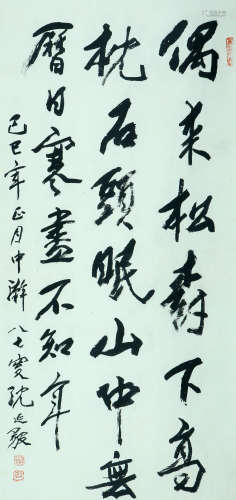 偶来松树下高
枕石頭眠山中無
曆日寒盡不知年
己巳年正月中澣八七叟沈延毅